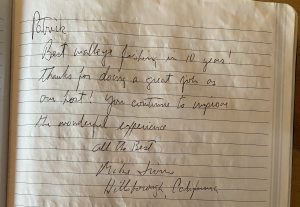 Patrick
Best walleye fishing in 10 years!
Thanks for doing a great job as
our host! You continue to improve
the wonderful experience
all the Best
Mike
Hillsborough, California